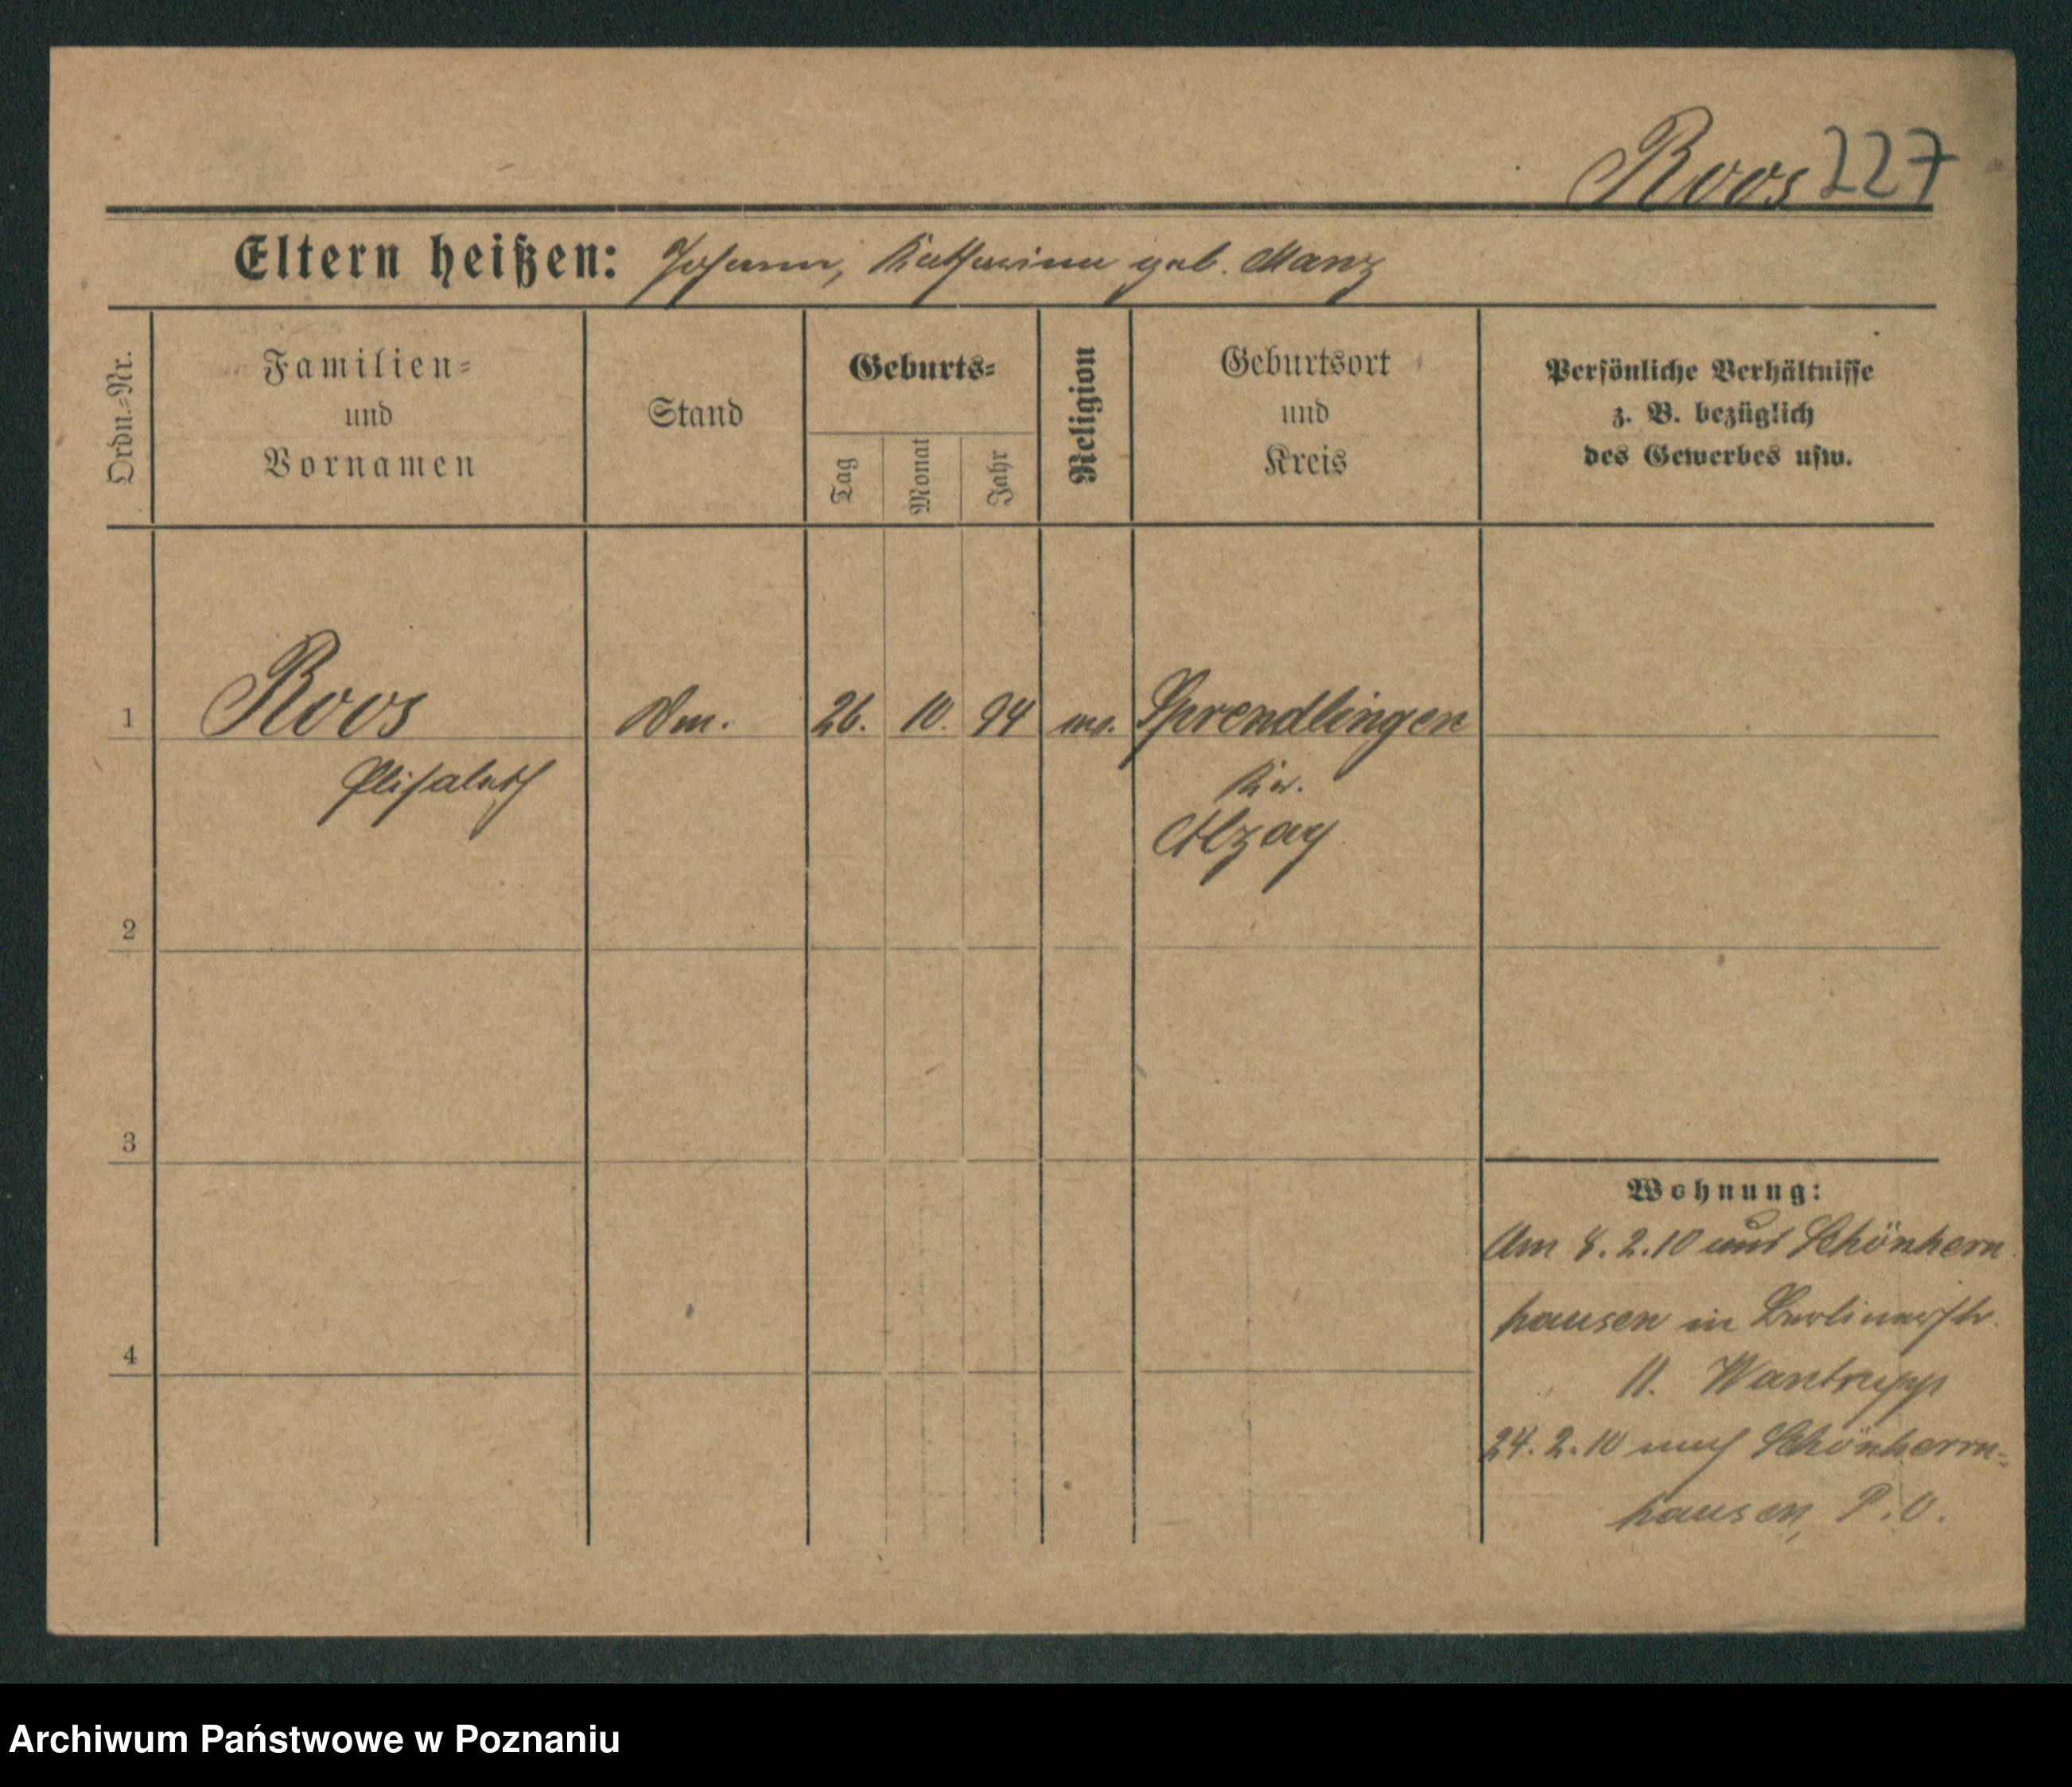 Roos 227
Eltern heißen: Johann, Katharina geb. Manz
Ordn.-Nr.
Familien-
und
Vornamen
Stand
Geburts-
Tag
Monat
Jahr
Religion
Geburtsort
und
Kreis
Persönliche Verhältnisse
z. B. bezüglich
des Gewerbes usw.
1 Roos 26. 10. 94 Sprendlingen
Elisabeth Kr.
Alzay
2
3
4
Wohnung:
Am 8.2.10 aus Schönhern
hausen in Berlinerstr.
11. Wantrupp
24.2.10 nach Schönherrn-
hausen, P.O.
Archiwum Państwowe w Poznaniu